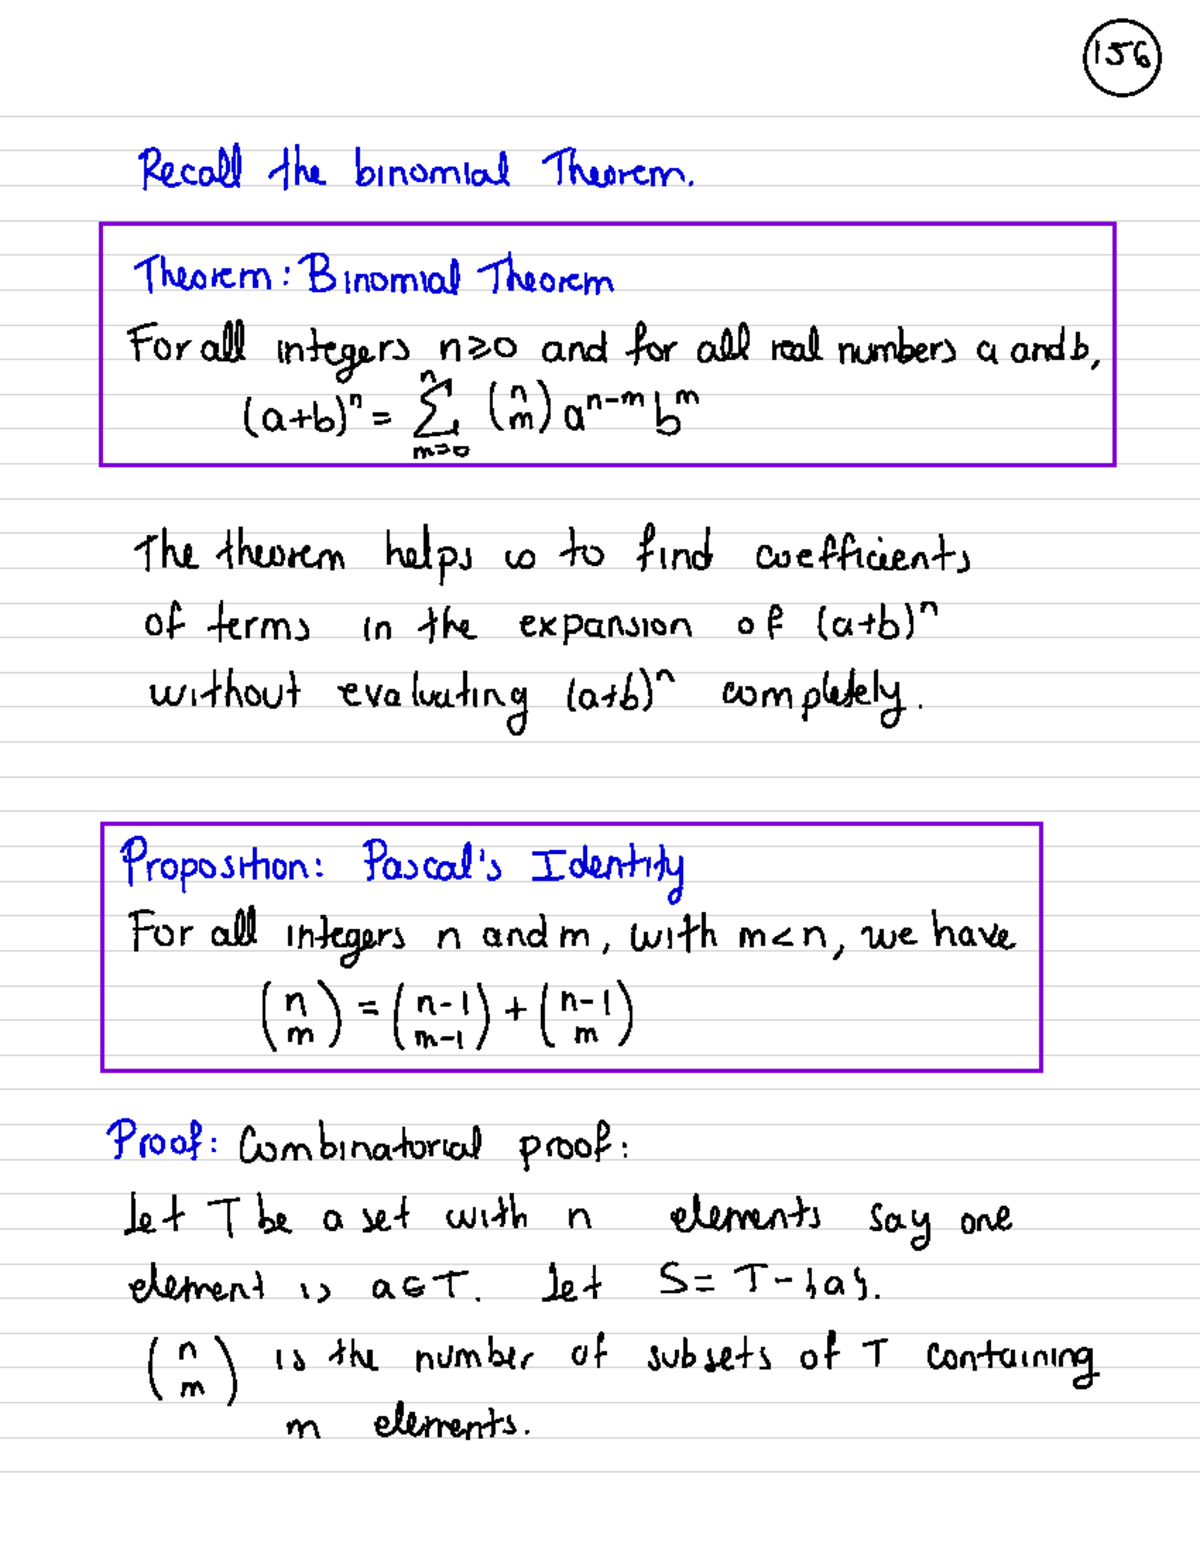 156
Recall the binomial Theorem.
Theorem: Binomial Theorem
For all integers n≥0 and for all real numbers a and b,
(a+b)^n = \sum_{m=0}^{n} \binom{n}{m} a^{n-m} b^m
The theorem helps us to find coefficients
of terms in the expansion of (a+b)^n
without evaluating (a+b)^n completely.
Proposition: Pascal's Identity
For all integers n and m, with m<n, we have
\binom{n}{m} = \binom{n-1}{m-1} + \binom{n-1}{m}
Proof: Combinatorial proof:
Let T be a set with n elements say one
element is a∈T. Let S = T-{a}.
\binom{n}{m} is the number of subsets of T containing
m elements.